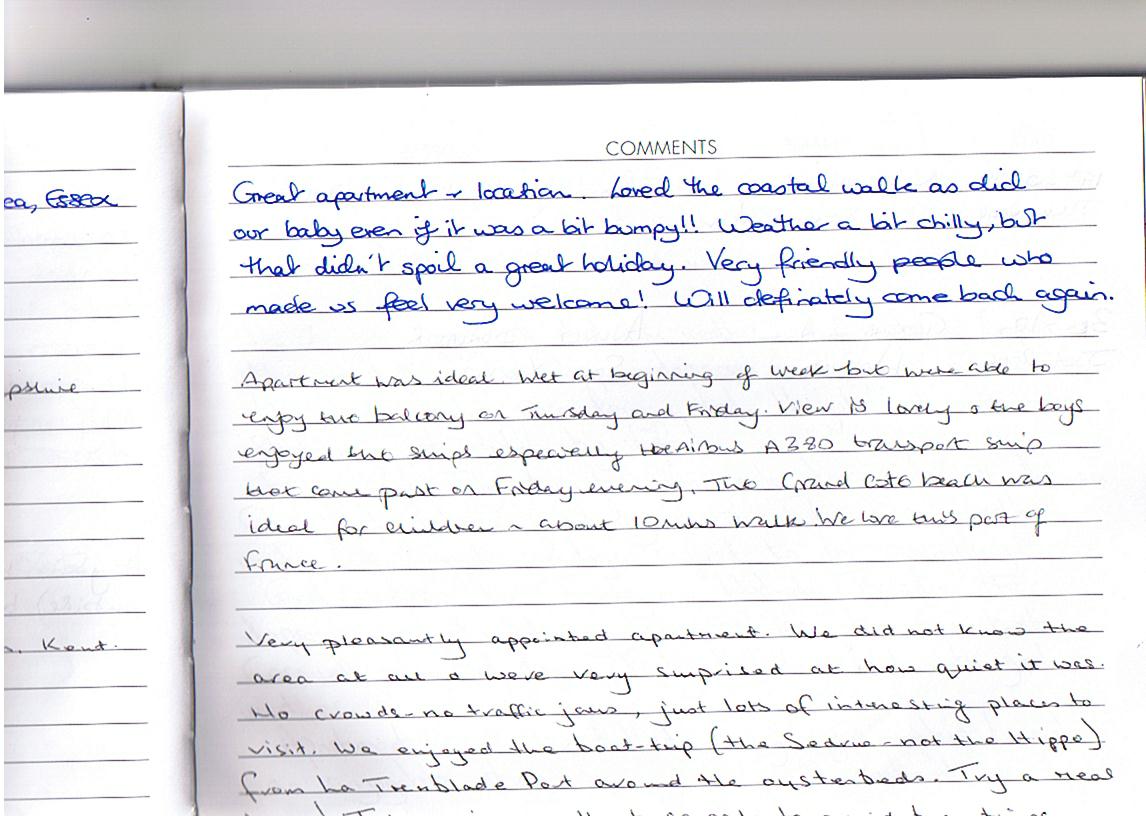 COMMENTS
ea, Essex
Great apartment + location. Loved the coastal walk as did
our baby even if it was a bit bumpy!! Weather a bit chilly, but
that didn't spoil a great holiday. Very friendly people who
made us feel very welcome! Will definately come back again.
pshire
Apartment was ideal. Wet at beginning of week but were able to
enjoy the balcony on Thursday and Friday. View is lovely & the boys
enjoyed the ships especially the Airbus A380 transport ship
that came past on Friday evening. The Grand Cote beach was
ideal for children ~ about 10 mins walk. We love this part of
France.
. Kent.
Very pleasantly appointed apartment. We did not know the
area at all & were very surprised at how quiet it was.
No crowds - no traffic jams, just lots of interesting places to
visit. We enjoyed the boat-trip (the Sedrue - not the Hippo)
from La Tremblade Port around the oysterbeds. Try a real